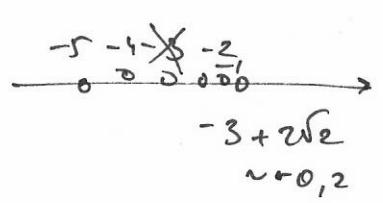 -5 -4 -2 -1
-3 + 2√2
~ -0,2